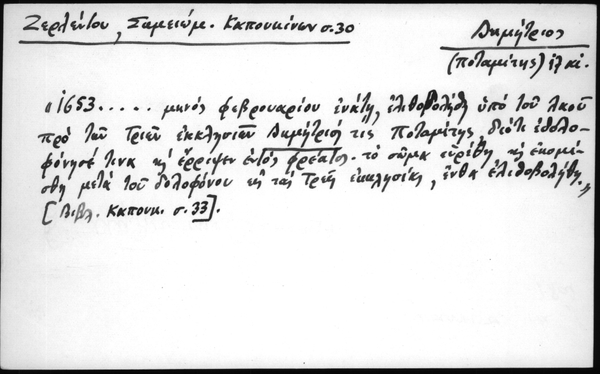 Ζερλέντου, Σημειώμ. Καπουκίνων σ. 30
Δημήτριος
(Ποταμίτης)
"1653..... μηνός φεβρουαρίου ἐνάτῃ, ἐλιθοβολήθη ὑπό τοῦ λαοῦ
πρό τῶν Τριῶν ἐκκλησιῶν Δημήτριός τις Ποταμίτης, διότι ἐδολο-
φόνησέ τινα κ' ἔρριψεν ἐντός φρέατος. τό σῶμα εὑρέθη κ' ἐκομί-
σθη μετά τοῦ δολοφόνου εἰς τάς Τρεῖς ἐκκλησίας, ἔνθα ἐλιθοβολήθη."
[Βιβλ. Καπουκ. σ. 33].